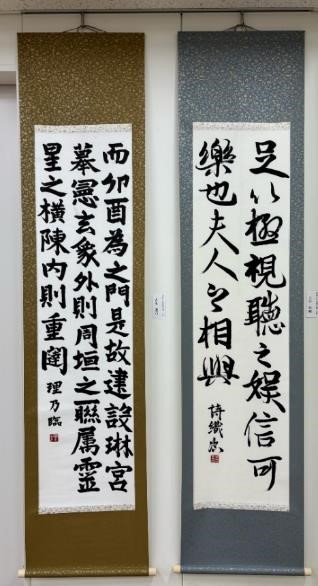 足以極視聽之娯信可
樂也夫人之相與
詩織臨
而卯酉為之門是故建設琳宮
摹憲玄象外則周垣之聯屬靈
星之横陳内則重闥
理乃臨